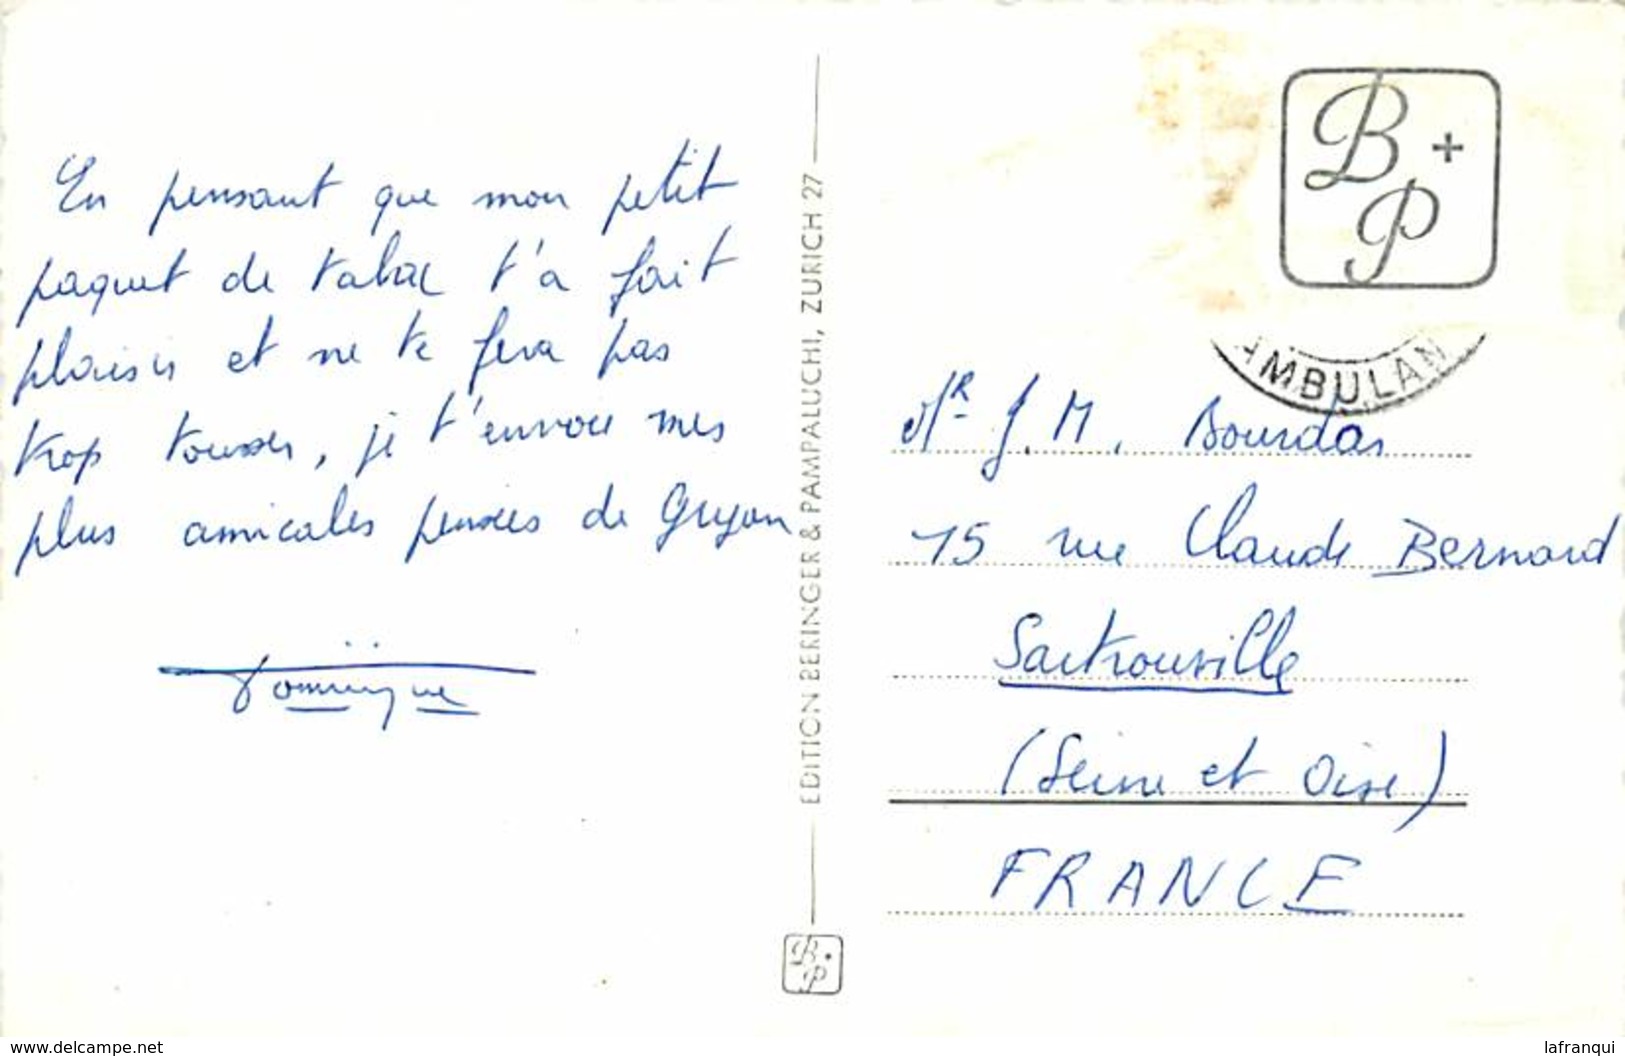 En pensant que mon petit
paquet de tabac t'a fait
plaisir et ne te fera pas
trop tousser, je t'envoie mes
plus amicales pensées de Gryon
Dominique
EDITION BERINGER & PAMPALUCHI, ZURICH 27
B+P
B+P
AMBULAN
Mr J.M. Bourdas
15 rue Claude Bernard
Sartrouville
(Seine et Oise)
FRANCE
www.delcampe.net
lafranqui